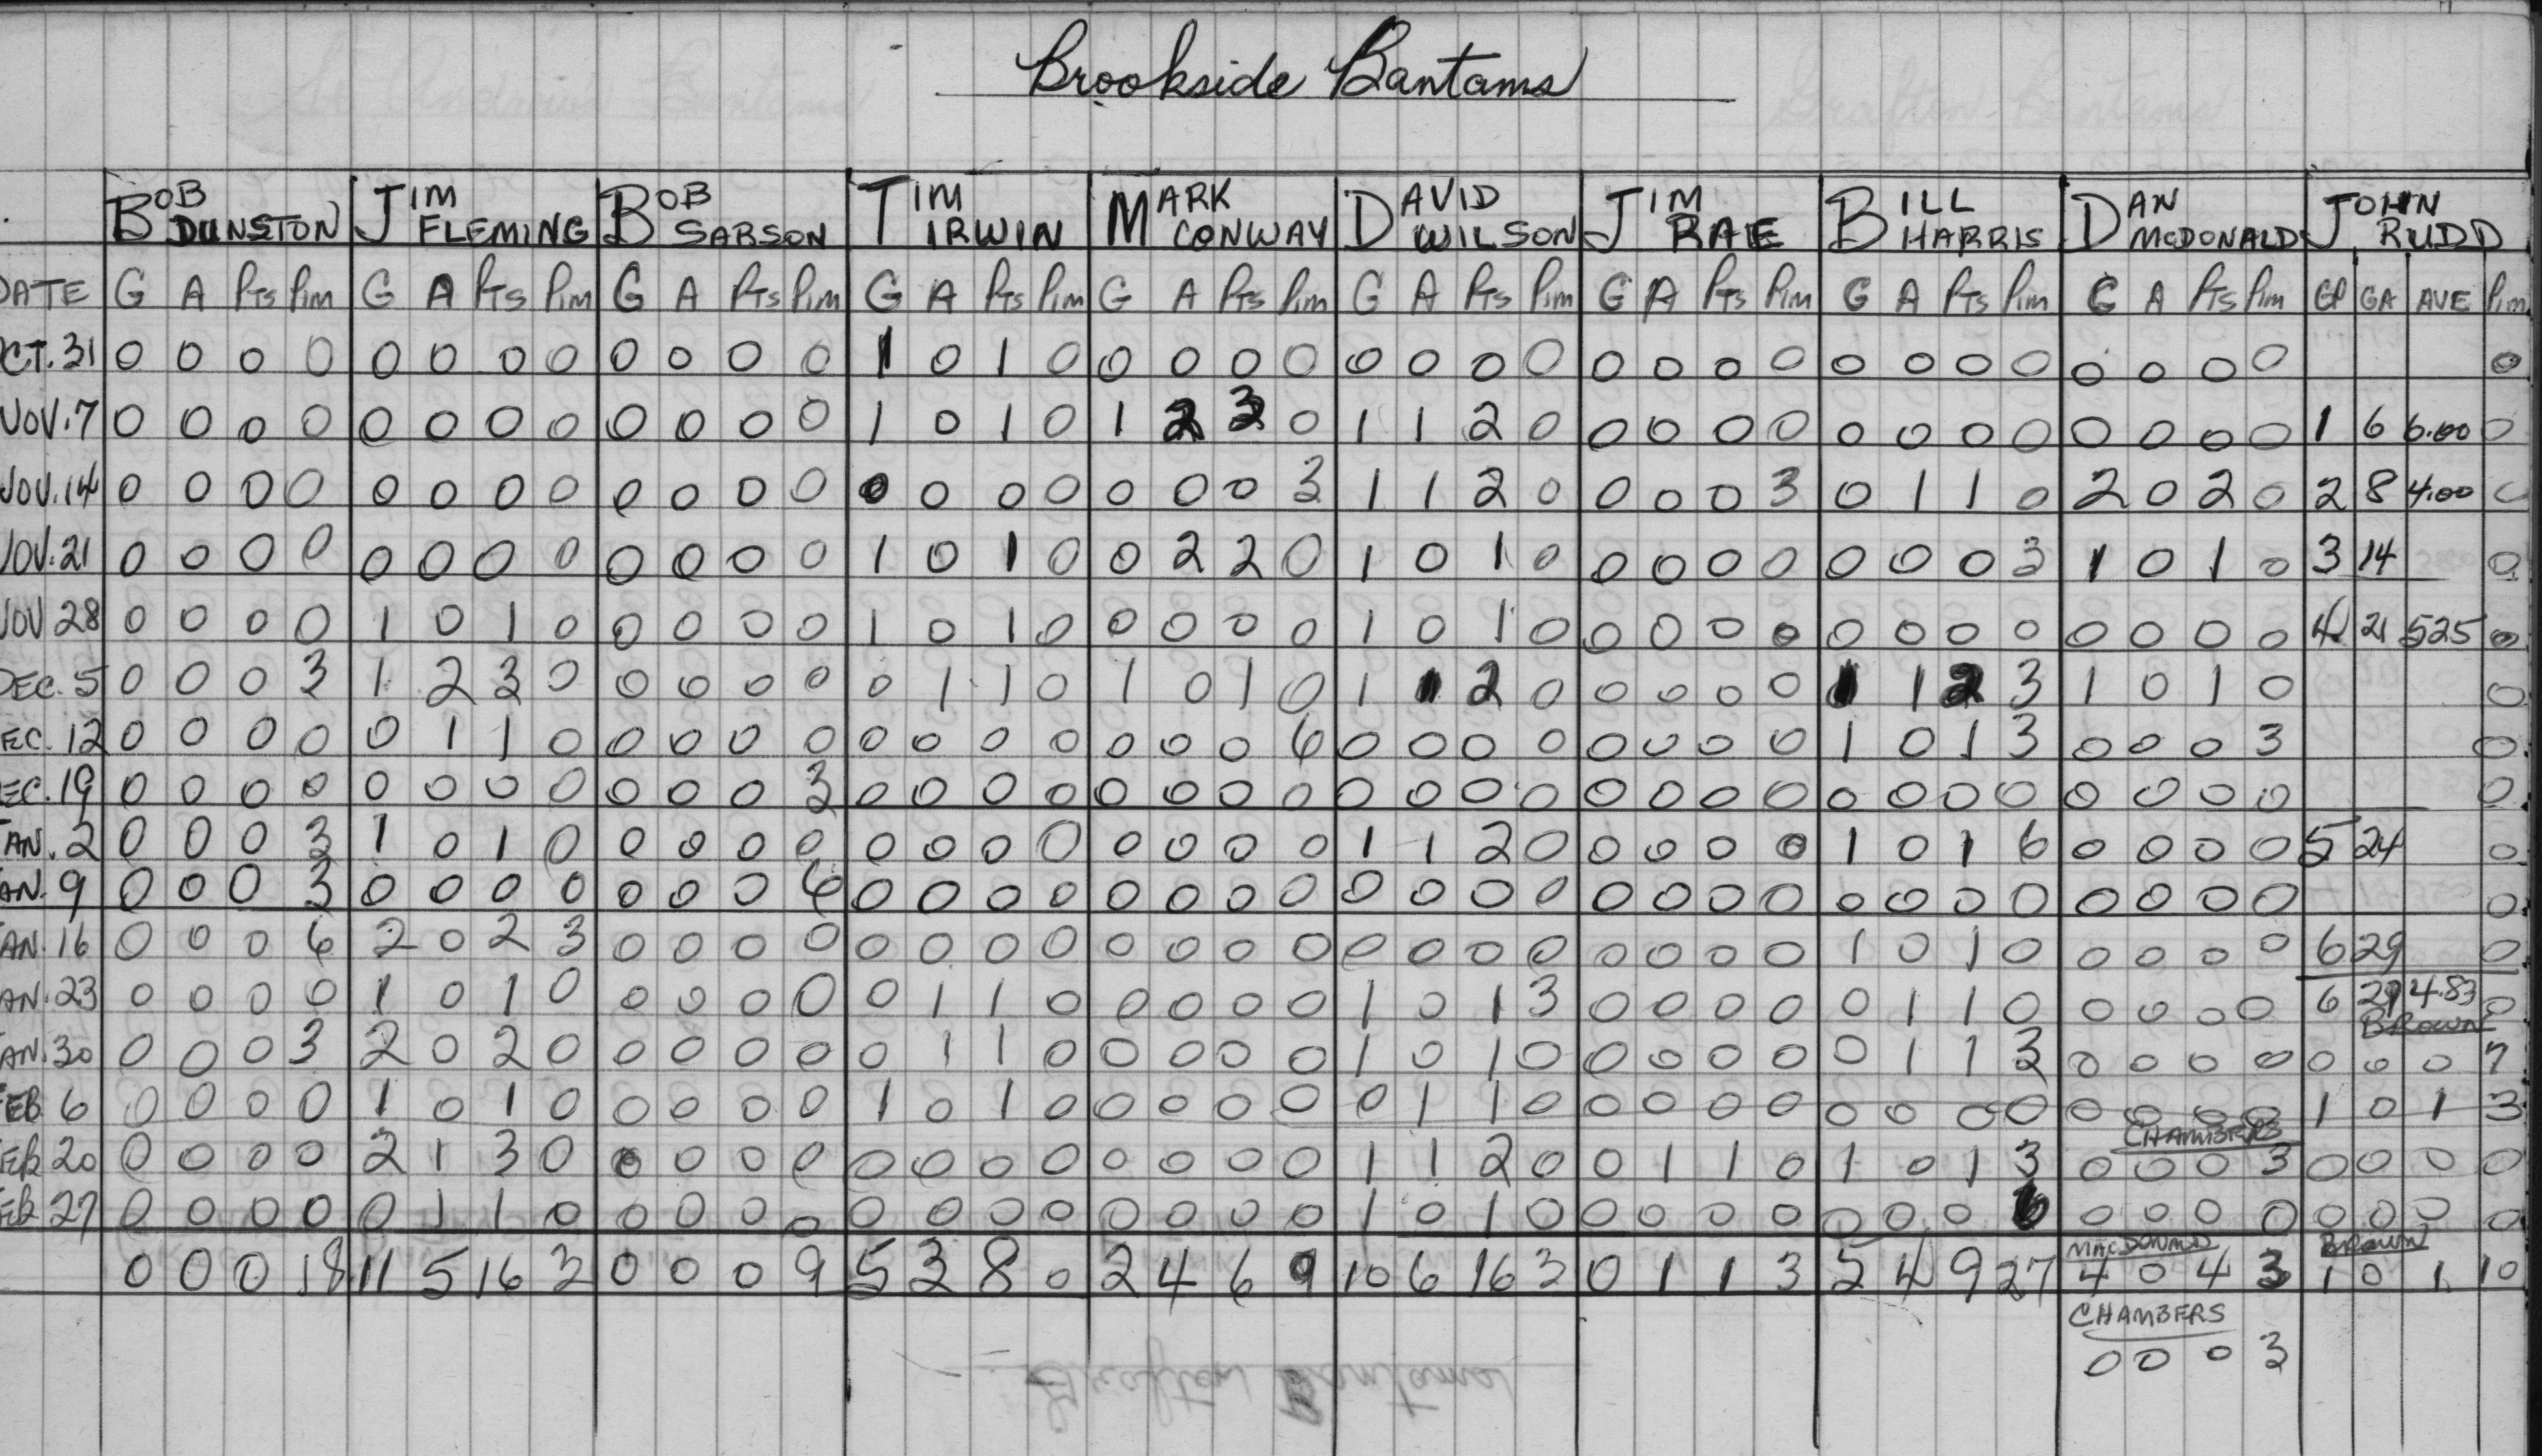 Brookside Bantams
BOB DUNSTON JIM FLEMING BOB SARSON TIM IRWIN MARK CONWAY DAVID WILSON JIM RAE BILL HARRIS DAN McDONALD JOHN RUDD
DATE G A Pts Pim G A Pts Pim G A Pts Pim G A Pts Pim G A Pts Pim G A Pts Pim G A Pts Pim G A Pts Pim G A Pts Pim GP GA AVE Pim
CT. 31 0 0 0 0 0 0 0 0 0 0 0 0 1 0 1 0 0 0 0 0 0 0 0 0 0 0 0 0 0 0 0 0 0 0 0 0 0
NOV. 7 0 0 0 0 0 0 0 0 0 0 0 0 1 0 1 0 1 2 3 0 1 1 2 0 0 0 0 0 0 0 0 0 0 0 0 0 1 6 6.00 0
NOV. 14 0 0 0 0 0 0 0 0 0 0 0 0 0 0 0 0 0 0 0 3 1 1 2 0 0 0 0 3 0 1 1 0 2 0 2 0 2 8 4.00 0
NOV. 21 0 0 0 0 0 0 0 0 0 0 0 0 1 0 1 0 0 2 2 0 1 0 1 0 0 0 0 0 0 0 0 3 1 0 1 0 3 14 0
NOV 28 0 0 0 0 1 0 1 0 0 0 0 0 1 0 1 0 0 0 0 0 1 0 1 0 0 0 0 0 0 0 0 0 0 0 0 0 4 21 525 0
DEC. 5 0 0 0 3 1 2 3 0 0 0 0 0 0 1 1 0 1 0 1 0 1 1 2 0 0 0 0 0 1 1 2 3 1 0 1 0 0
EC. 12 0 0 0 0 0 1 1 0 0 0 0 0 0 0 0 0 0 0 0 6 0 0 0 0 0 0 0 0 1 0 1 3 0 0 0 3 0
EC. 19 0 0 0 0 0 0 0 0 0 0 0 3 0 0 0 0 0 0 0 0 0 0 0 0 0 0 0 0 0 0 0 0 0 0 0 0 0
AN. 2 0 0 0 3 1 0 1 0 0 0 0 0 0 0 0 0 0 0 0 0 1 1 2 0 0 0 0 0 1 0 1 6 0 0 0 0 5 24 0
AN. 9 0 0 0 3 0 0 0 0 0 0 0 6 0 0 0 0 0 0 0 0 0 0 0 0 0 0 0 0 0 0 0 0 0 0 0 0 0
AN. 16 0 0 0 6 2 0 2 3 0 0 0 0 0 0 0 0 0 0 0 0 0 0 0 0 0 0 0 0 1 0 1 0 0 0 0 0 6 29 0
AN. 23 0 0 0 0 1 0 1 0 0 0 0 0 0 1 1 0 0 0 0 0 1 0 1 3 0 0 0 0 0 1 1 0 0 0 0 0 6 29 4.83 0
BROWN
AN. 30 0 0 0 3 2 0 2 0 0 0 0 0 0 1 1 0 0 0 0 0 1 0 1 0 0 0 0 0 0 1 1 3 0 0 0 0 0 0 0 7
FEB 6 0 0 0 0 1 0 1 0 0 0 0 0 1 0 1 0 0 0 0 0 0 1 1 0 0 0 0 0 0 0 0 0 0 0 0 0 1 0 1 3
CHAMBERS
FEB 20 0 0 0 0 2 1 3 0 0 0 0 0 0 0 0 0 0 0 0 0 1 1 2 0 0 1 1 0 1 0 1 3 0 0 0 3 0 0 0 0
EB 27 0 0 0 0 0 1 1 0 0 0 0 0 0 0 0 0 0 0 0 0 1 0 1 0 0 0 0 0 0 0 0 6 0 0 0 0 0 0 0 0
MACDONALD BROWN
0 0 0 18 11 5 16 3 0 0 0 9 5 3 8 0 2 4 6 9 10 6 16 3 0 1 1 3 5 4 9 27 4 0 4 3 1 0 1 10
CHAMBERS
0 0 0 3